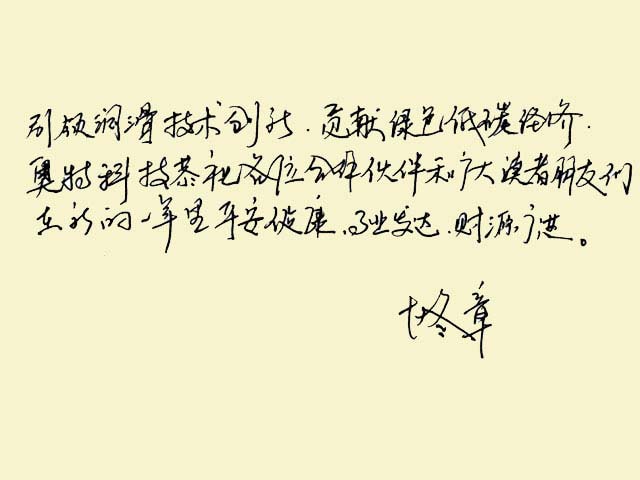 引领润滑技术创新.贡献绿色低碳经济.
奥特科技恭祝各位合作伙伴和广大读者朋友们
在新的一年里平安健康、事业发达.财源广进。